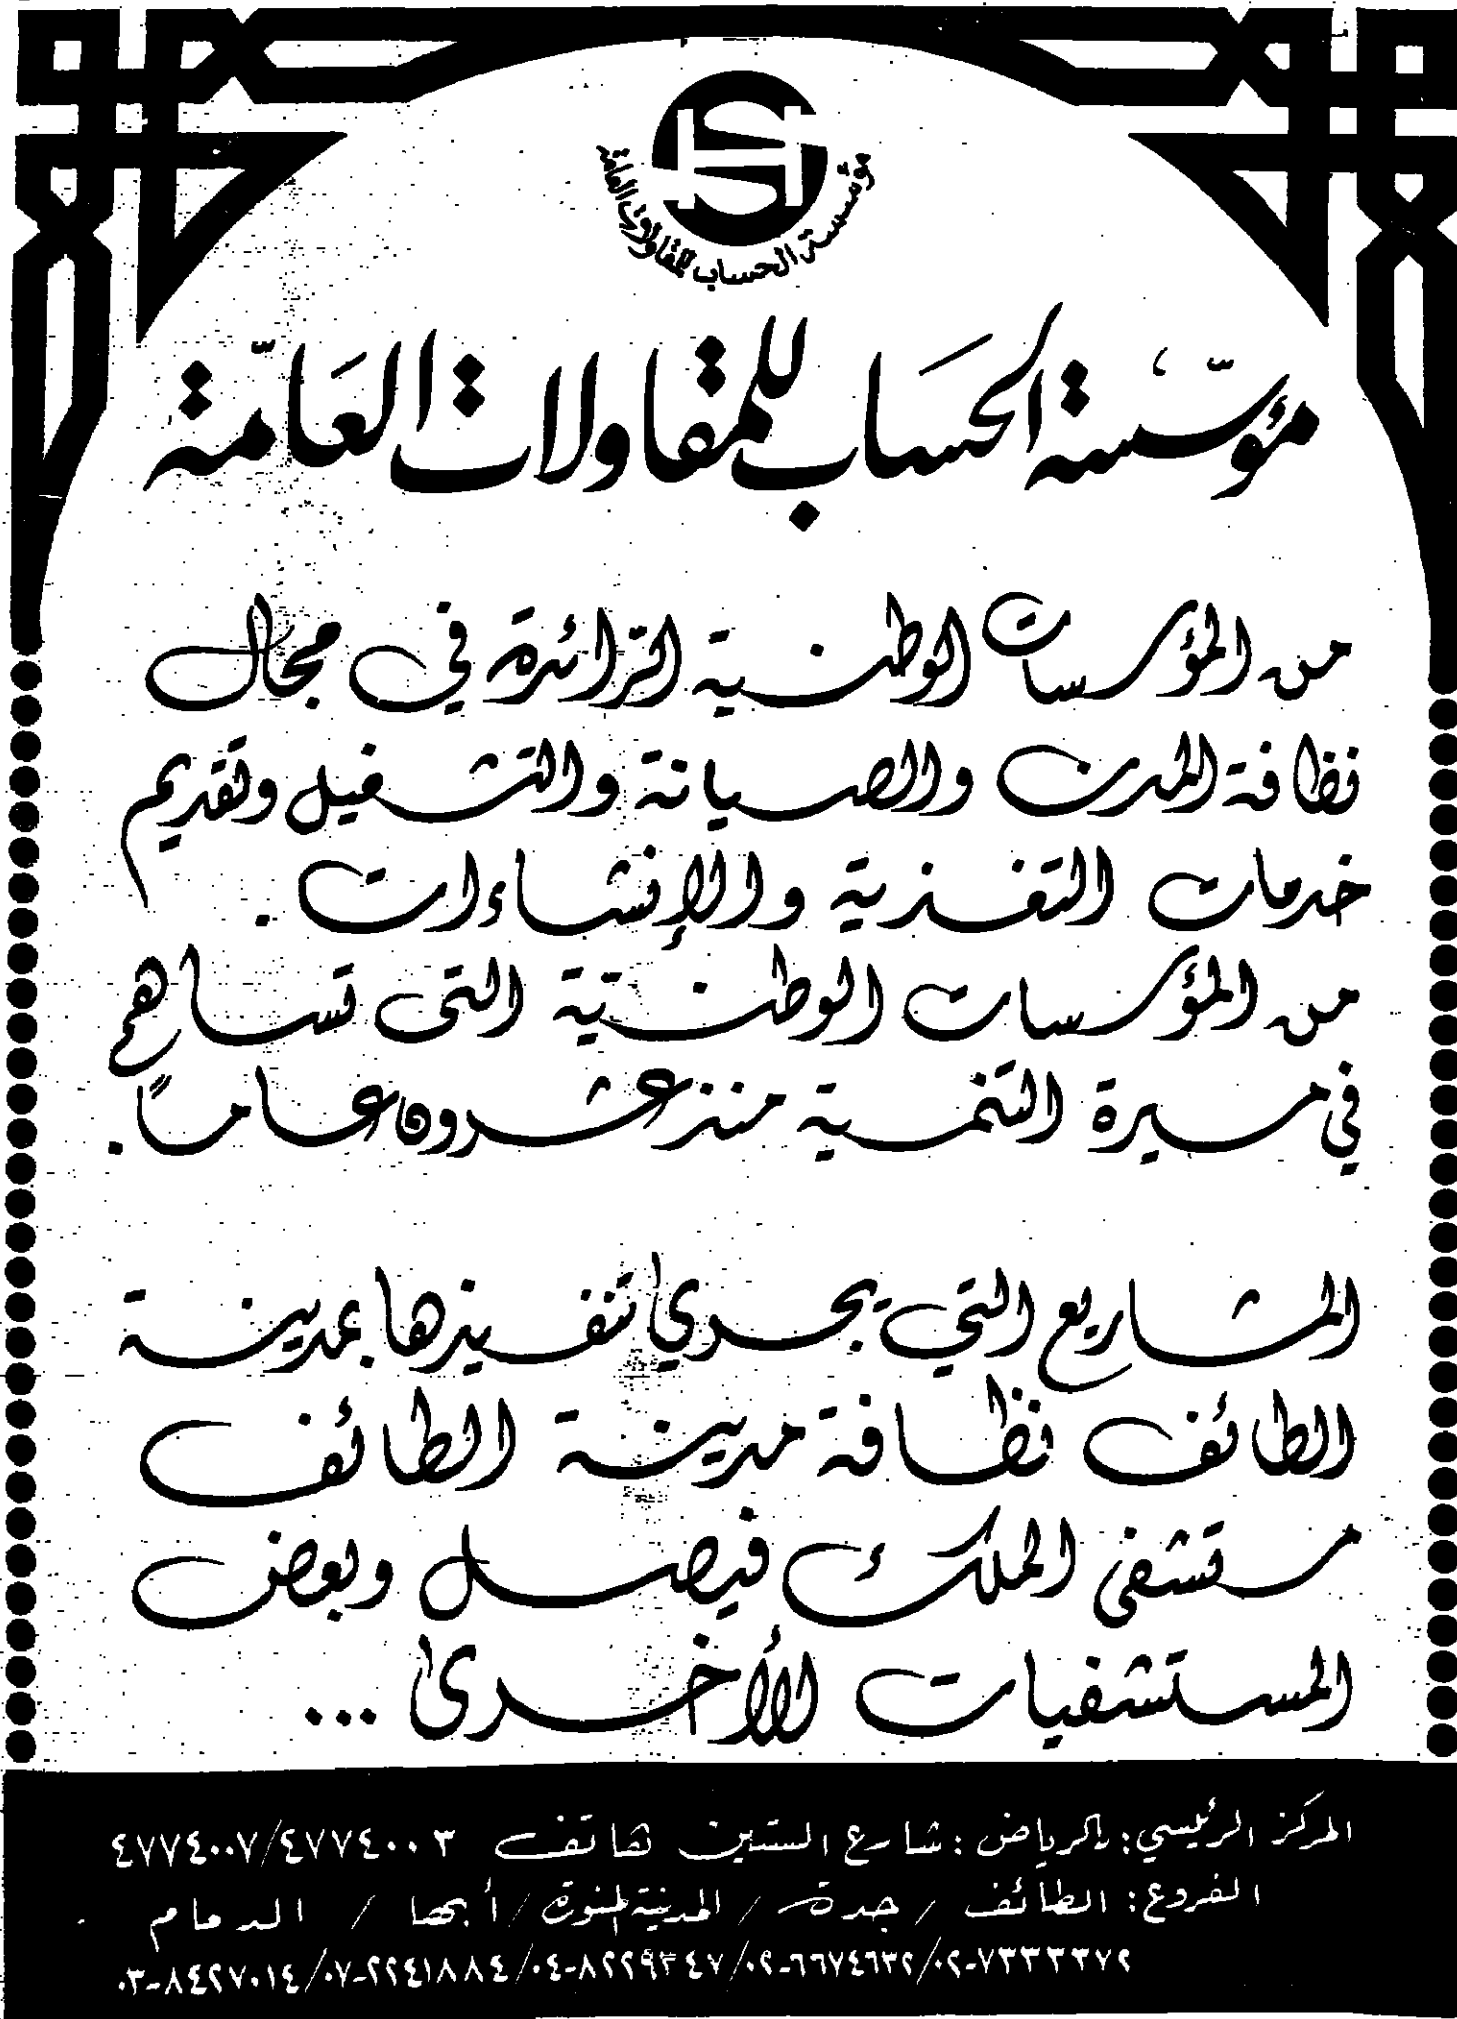 مؤسسة الحساب للمقاولات العامة
مؤسّسة الحسَاب للمقاولات العَامّة
من المؤسسات الوطنية الرائدة في مجال
نظافة المدن والصيانة والتشغيل وتقديم
خدمات التغذية والإنشاءات .
من المؤسسات الوطنية التى تساهم
في مسيرة التنمية منذ عشرون عاماً .
المشاريع التي يجري تنفيذها بمدينة
الطائف نظافة مدينة الطائف
مستشفى الملك فيصل وبعض
المستشفيات الأخرى ...
المركز الرئيسي: بالرياض: شارع الستين هاتف ٤٧٧٤٠٠٣/٤٧٧٤٠٠٧
الفروع: الطائف / جدة / المدينة المنورة / أبها / الدمام
٠٢-٧٣٣٣٣٧٢/٠٢-٦٦٧٤٦٣٢/٠٤-٨٢٢٩٣٤٧/٠٧-٢٢٤١٨٨٤/٠٣-٨٤٢٧٠١٤